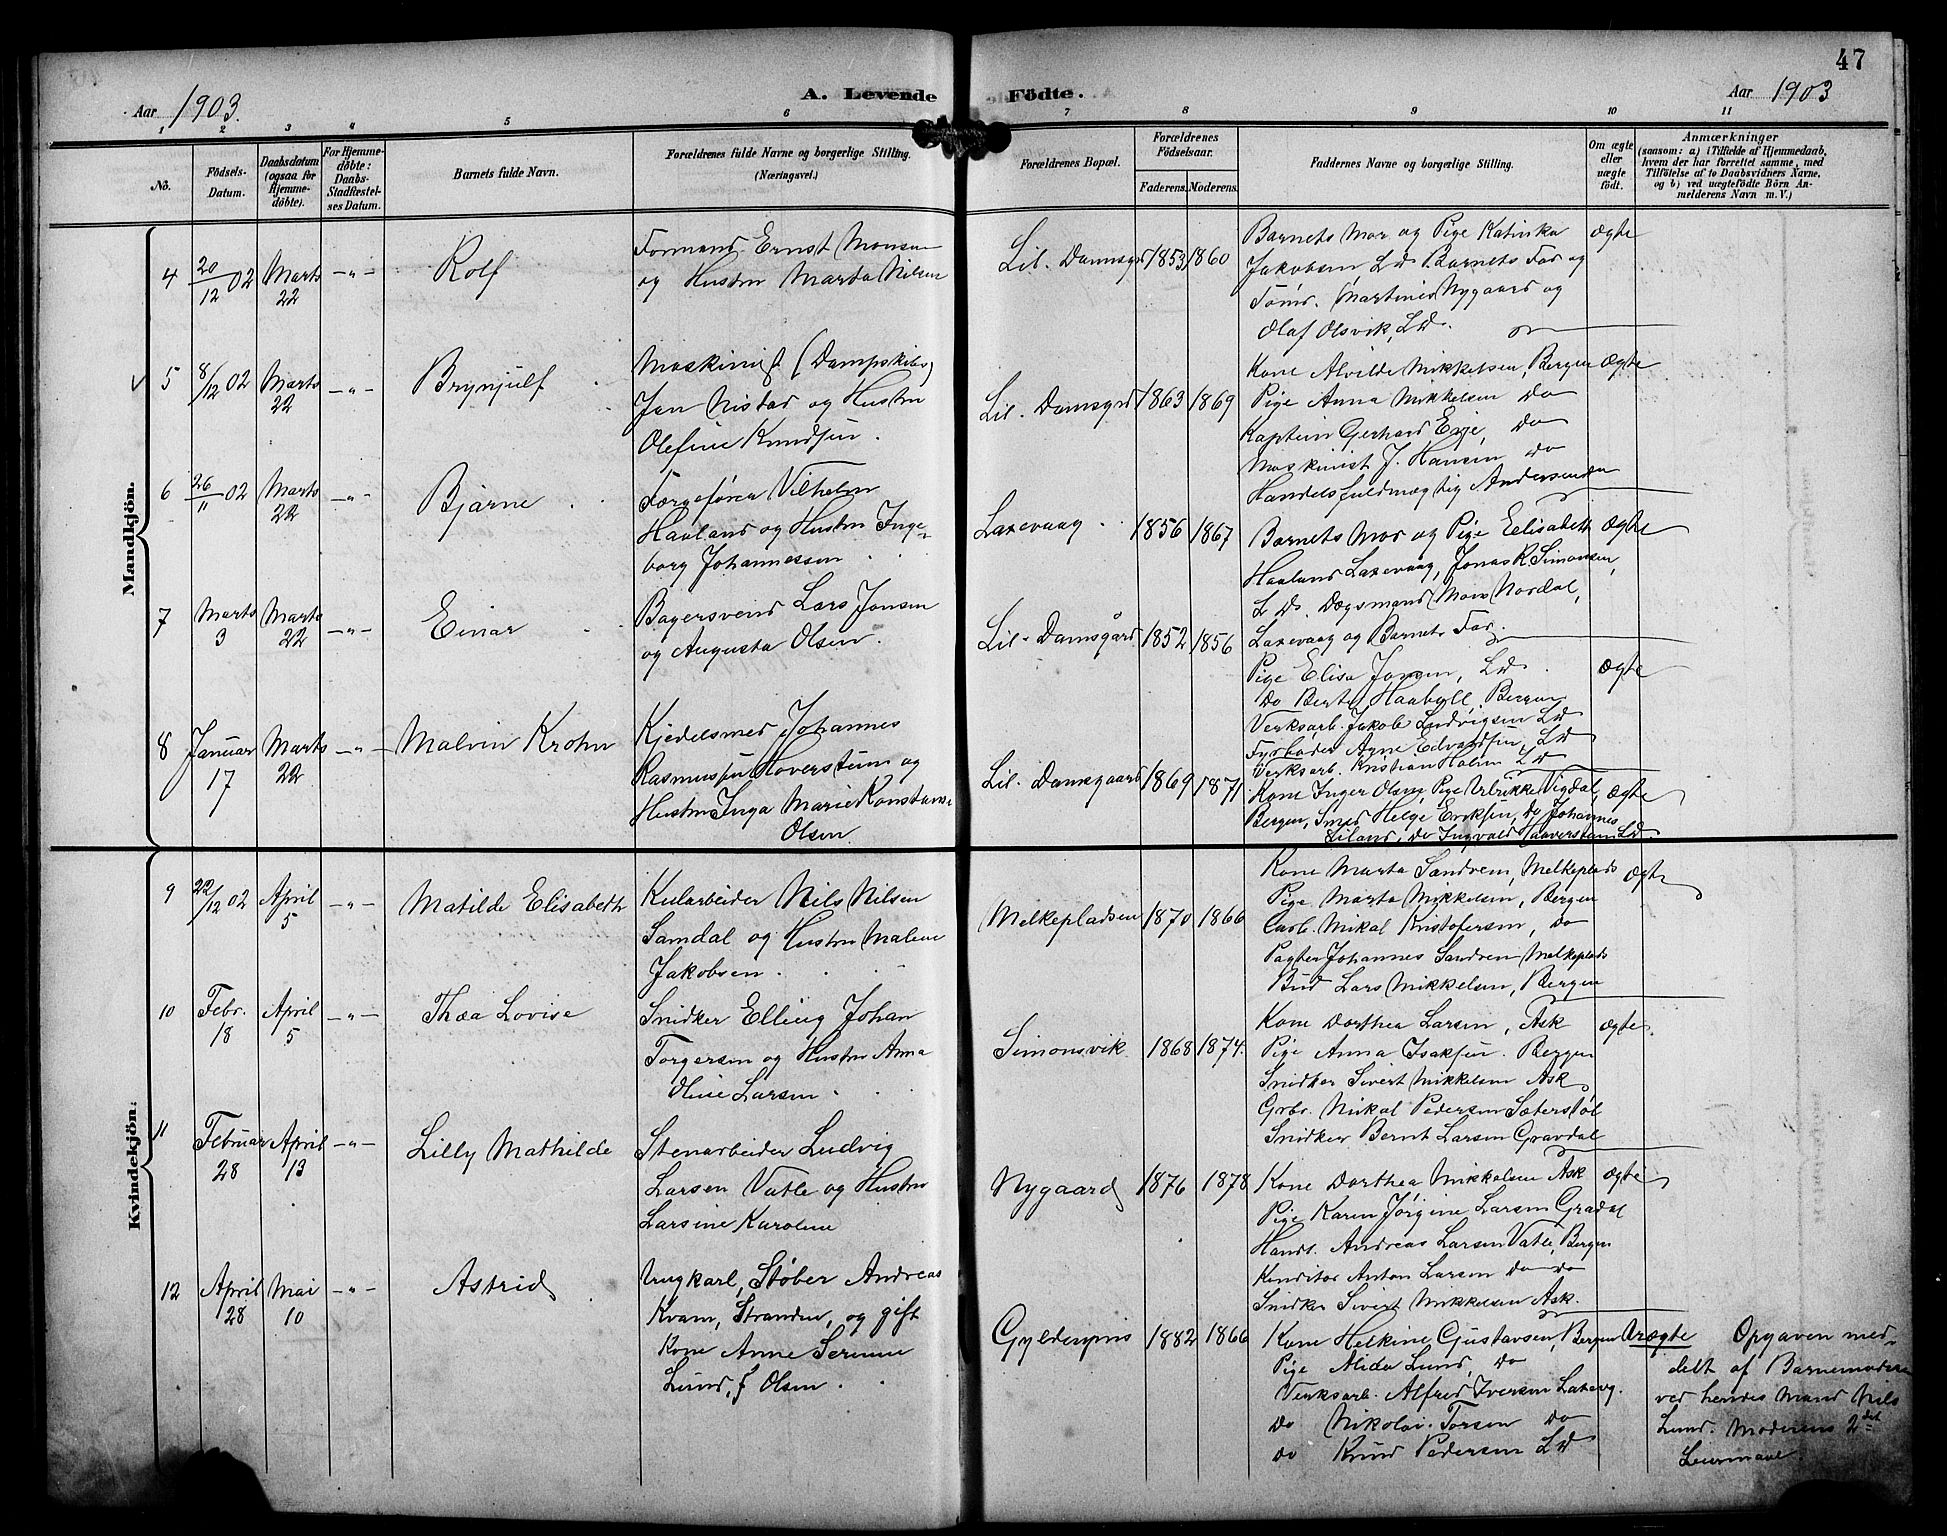 47
Aar 1903.
A. Levende
Födte.
Aar 1903
1 2 3 4 5 6
7 8 9 10 11
No.
Födsels-
Datum.
Daabsdatum
(ogsaa for
Hjemme-
döbte).
For Hjemme-
döbte:
Daabs-
Stadfæstel-
ses Datum.
Barnets fulde Navn.
Forældrenes fulde Navne og borgerlige Stilling.
(Næringsvei.)
Forældrenes Bopæl.
Forældrenes
Födselsaar.
Faderens. Moderens.
Faddernes Navne og borgerlige Stilling.
Om ægte
eller
uægte
födt.
Anmærkninger
(saasom: a) i Tilfælde af Hjemmedaab,
hvem der har forrettet samme, med
Tilföielse af to Daabsvidners Navne,
og b) ved uægtefödte Börn An-
melderens Navn m. V.)
Mandkjön.
4
20/12 02
Marts
22
-"-
Rolf
Formand Ernst Monsen
og Hustru Marta Nilsen
Lil. Damsgrd
1853
1860
Barnets Mor og Pige Katinka
Jakobsen LD Barnets Far og
Tømd. Martines Nygaard og
Olaf Olsvik, LD.
ægte
5
8/12 02
Marts
22
-"-
Brynjulf
Maskinist (Dampskibs)
Jan Nistad og Hustru
Olefine Knudsen.
Lil. Damsgrd
1863
1869
Kone Alvilde Mikkelsen, Bergen
Pige Anna Mikkelsen do
Kaptein Gerhard Eije, do
Maskinist J. Hansen do
Handelsfuldmægtig Andersen do
ægte
6
26/11 02
Marts
22
-"-
Bjarne
Færgefører Vilhelm
Haaland og Hustru Inge-
borg Johannessen
Laxevaag
1856
1867
Barnets Mor og Pige Elisabeth
Haaland Laxevaag, Jonas R. Simonsen,
LD. Dagsmand Mons Nordal,
Laxevaag og Barnets Far.
ægte
7
Marts
3
Marts
22
-"-
Einar
Bagersvend Lars Jonsen
og Augusta Olsen.
Lil-Damsgård
1852
1856
Pige Elisa Jonsen, LD
do Berte Haabyll, Bergen
Verksarb. Jakob Ludvigsen LD
Fyrbøder Arne Edvardsen, LD
Verksarb. Kristian Holm LD
ægte
8
Januar
17
Marts
22
-"-
Malvin Krohn
Kjedelsmed Johannes
Rasmussen Hoverstum og
Hustru Inga Marie Konstanse
Olsen
Lil. Damsgaard
1869
1871
Kone Inger Olsen, Pige Ulrikke Vigdal,
Bergen, Smed Helge Eriksen, do Johannes
Liland, do Ingvald Haaverstam LD.
ægte
Kvindekjön:
9
22/12 02
April
5
-"-
Matilde Elisabeth
Kularbeider Nils Nilsen
Samdal og Hustru Malene
Jakobsen.
Melkepladsen
1870
1866
Kone Marta Sandven, Melkeplads
Pige Marta Mikkelsen, Bergen
Mikal Kristofersen, do
Pagter Johannes Sandven Melkeplads
Bud Lars Mikkelsen, Bergen
ægte
10
Febr.
18
April
5
-"-
Thea Lovise
Snidker Elling Johan
Torgersen og Hustru Anna
Oline Larsen.
Simonsvik
1868
1874.
Kone Dorthea Larsen, Ask
Pige Anna Isaksen. Bergen
Snidker Sivert Mikkelsen Ask
Grbr. Mikal Pedersen Sæterstøl
Snidker Bernt Larsen Gravdal
ægte.
11
Februar
28
April
13
-"-
Lilly Mathilde
Stenarbeider Ludvig
Larsen Vatle og Hustru
Larsine Karoline
Nygaard
1876
1878
Kone Dorthea Mikkelsen Ask
Pige Karen Jørgine Larsen Gradal
Handl. Andreas Larsen Vatle, Bergen
Konditor Anton Larsen do do
Snidker Sivert Mikkelsen Ask.
ægte
12
April
28
Mai
10
-"-
Astrid
Ungkarl, Støber Andreas
Kvam, Stranden, og gift
Kone Anne Serine
Lund, f Olsen.
Gyldenpris
1882
1866
Kone Helkine Gustavsen, Bergen
Pige Alida Lund, do
Verksarb. Alfred Iversen Laxevg.
do Nikolai Torsen do
do Knud Pedersen LD
Uægte
Opgaven med-
delt af Barnemoderen
ved hendes Mand Nils
Lund. Moderens 2det
Leiermaal.